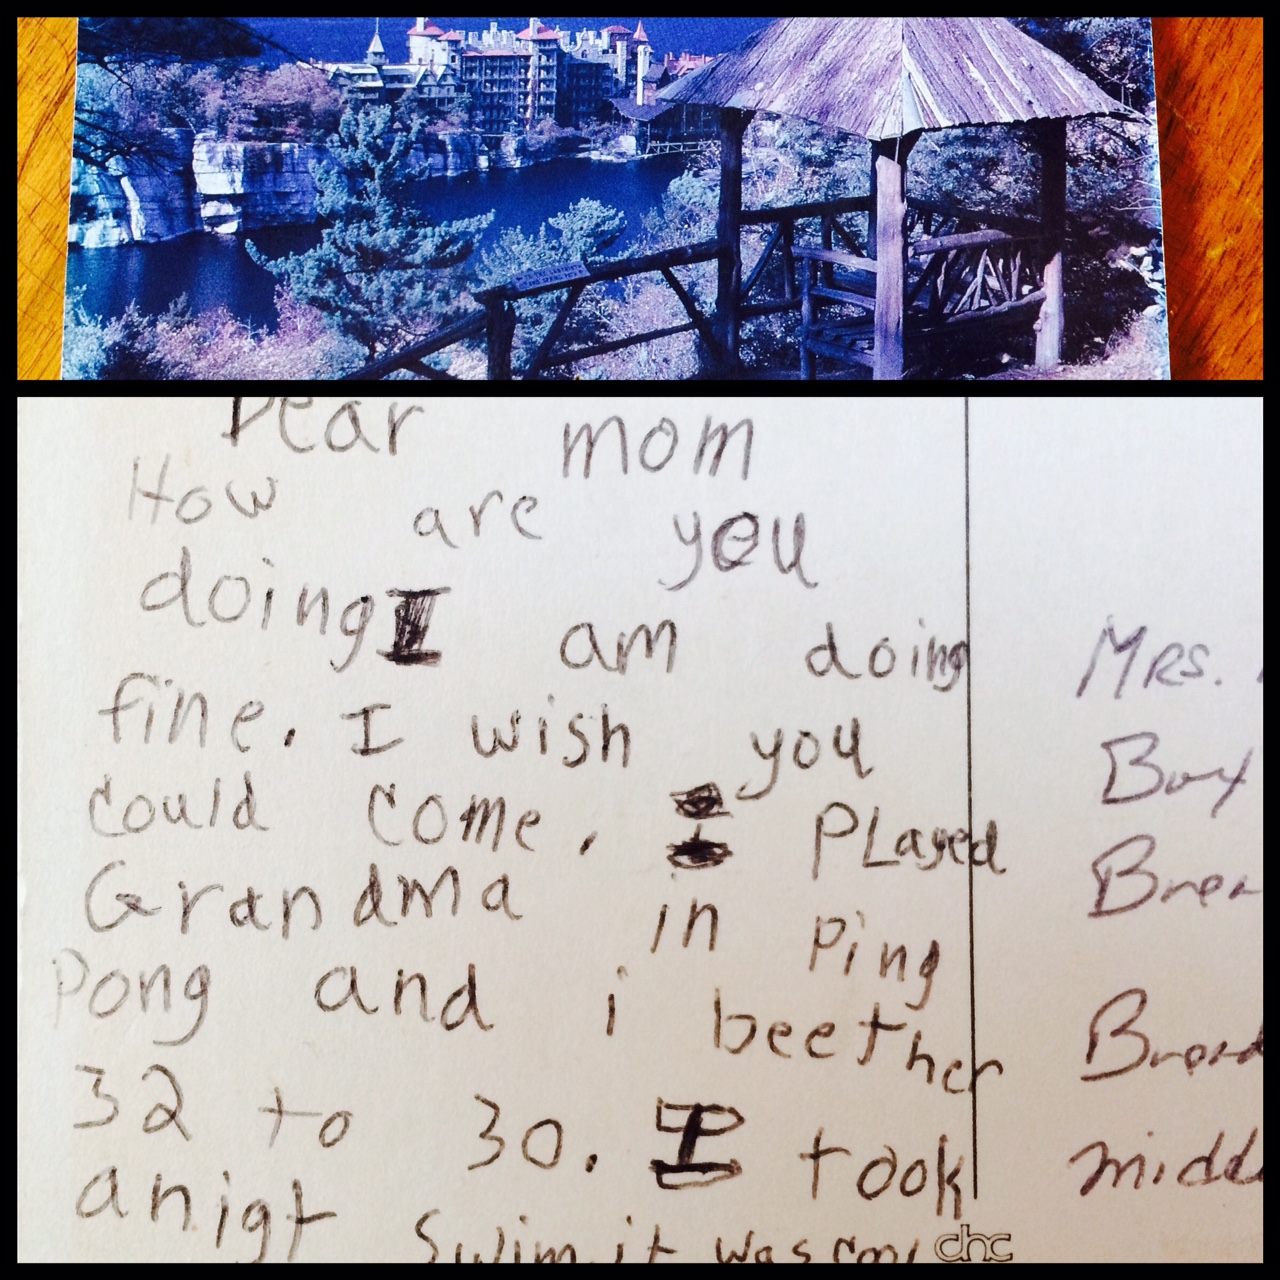 Dear mom
How are you
doing I am doing
fine. I wish you
could come. I PLayed
Grandma in Ping
Pong and i beether
32 to 30. I took
anigt swim. it was cool
chc
Mrs.
Box